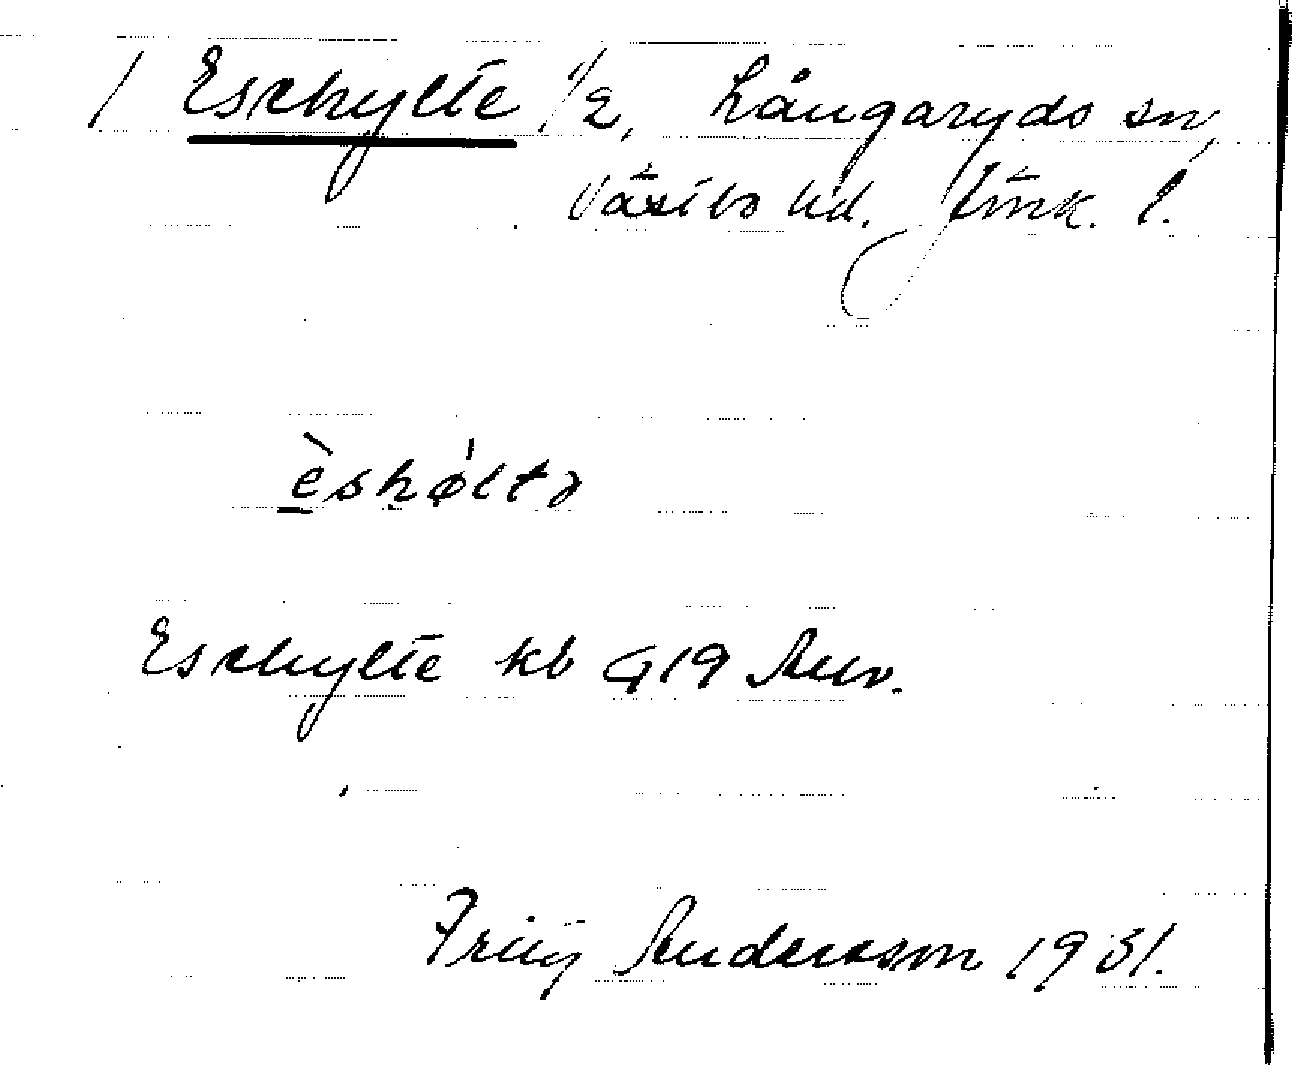 / Eschylte 1/2, Långaryds sn,
Västbo hd. Jönk. l.
èshǿltə
Eschylte kb G19 Anv.
Andersson 1931.